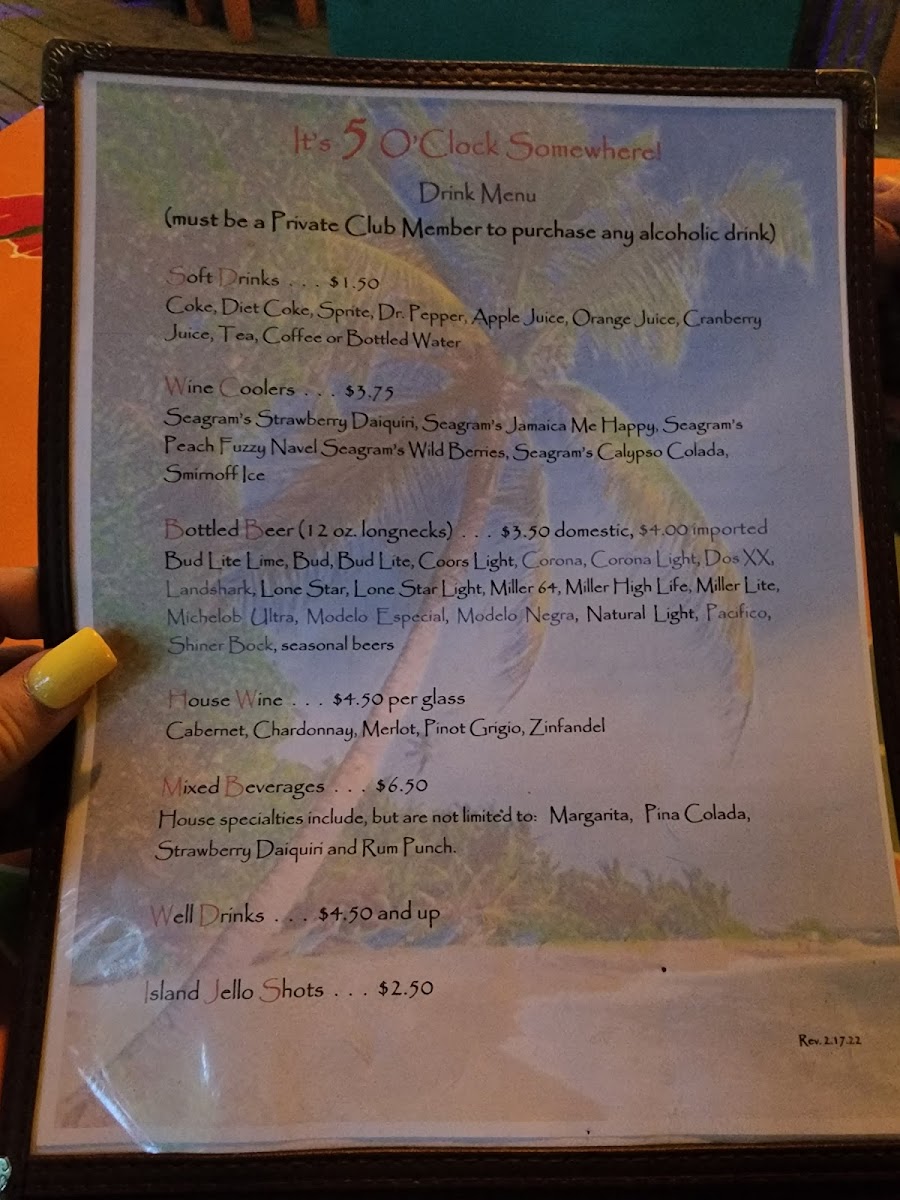 It's 5 O'Clock Somewhere!
Drink Menu
(must be a Private Club Member to purchase any alcoholic drink)
Soft Drinks . . . $1.50
Coke, Diet Coke, Sprite, Dr. Pepper, Apple Juice, Orange Juice, Cranberry
Juice, Tea, Coffee or Bottled Water
Wine Coolers . . . $3.75
Seagram's Strawberry Daiquiri, Seagram's Jamaica Me Happy, Seagram's
Peach Fuzzy Navel Seagram's Wild Berries, Seagram's Calypso Colada,
Smirnoff Ice
Bottled Beer (12 oz. longnecks) . . . $3.50 domestic, $4.00 imported
Bud Lite Lime, Bud, Bud Lite, Coors Light, Corona, Corona Light, Dos XX,
Landshark, Lone Star, Lone Star Light, Miller 64, Miller High Life, Miller Lite,
Michelob Ultra, Modelo Especial, Modelo Negra, Natural Light, Pacifico,
Shiner Bock, seasonal beers
House Wine . . . $4.50 per glass
Cabernet, Chardonnay, Merlot, Pinot Grigio, Zinfandel
Mixed Beverages . . . $6.50
House specialties include, but are not limited to: Margarita, Pina Colada,
Strawberry Daiquiri and Rum Punch.
Well Drinks . . . $4.50 and up
Island Jello Shots . . . $2.50
Rev. 2.17.22